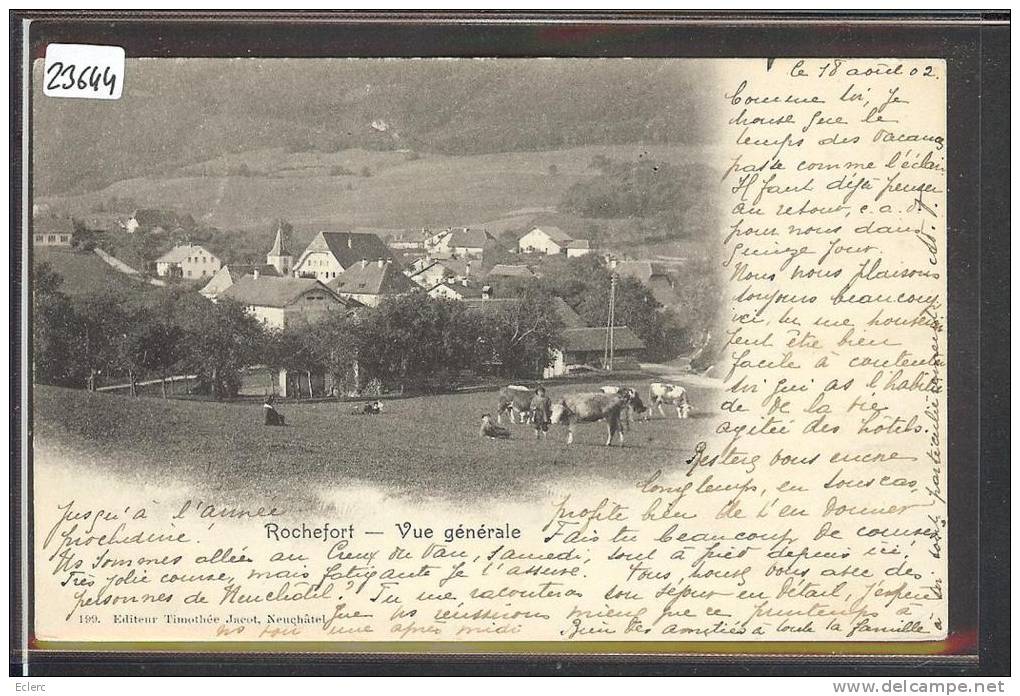 23644
le 18 août 02.
Comme toi, je
trouve que le
temps des vacances
passe comme l'éclair
Il faut déjà penser
au retour, c.a.d.
pour nous dans
quinze jours.
Nous nous plaisons
toujours beaucoup
ici, tu me
peut être bien
facile à contenter
toi qui as l'habitu
de de la vie
agitée des hôtels.
Resterez vous encore
longtemps, en tous cas,
profite bien de l'en donner
jusqu'à l'année
prochaine.
Rochefort — Vue générale
Fais tu beaucoup de courses
Ns sommes allée au Creux du Van, samedi, tout à pied depuis ici,
Très jolie course, mais fatigante je t'assure. Vous, vous avec des
personnes de Neuchâtel. Tu me raconteras ton séjour en détail, j'espère
que ns réussirons mieux que ce printemps à
199. Editeur Timothée Jacot, Neuchâtel
ns voir une après midi
Bien des amitiés à toute la famille
à toi particulièrement
Eclerc
www.delcampe.net